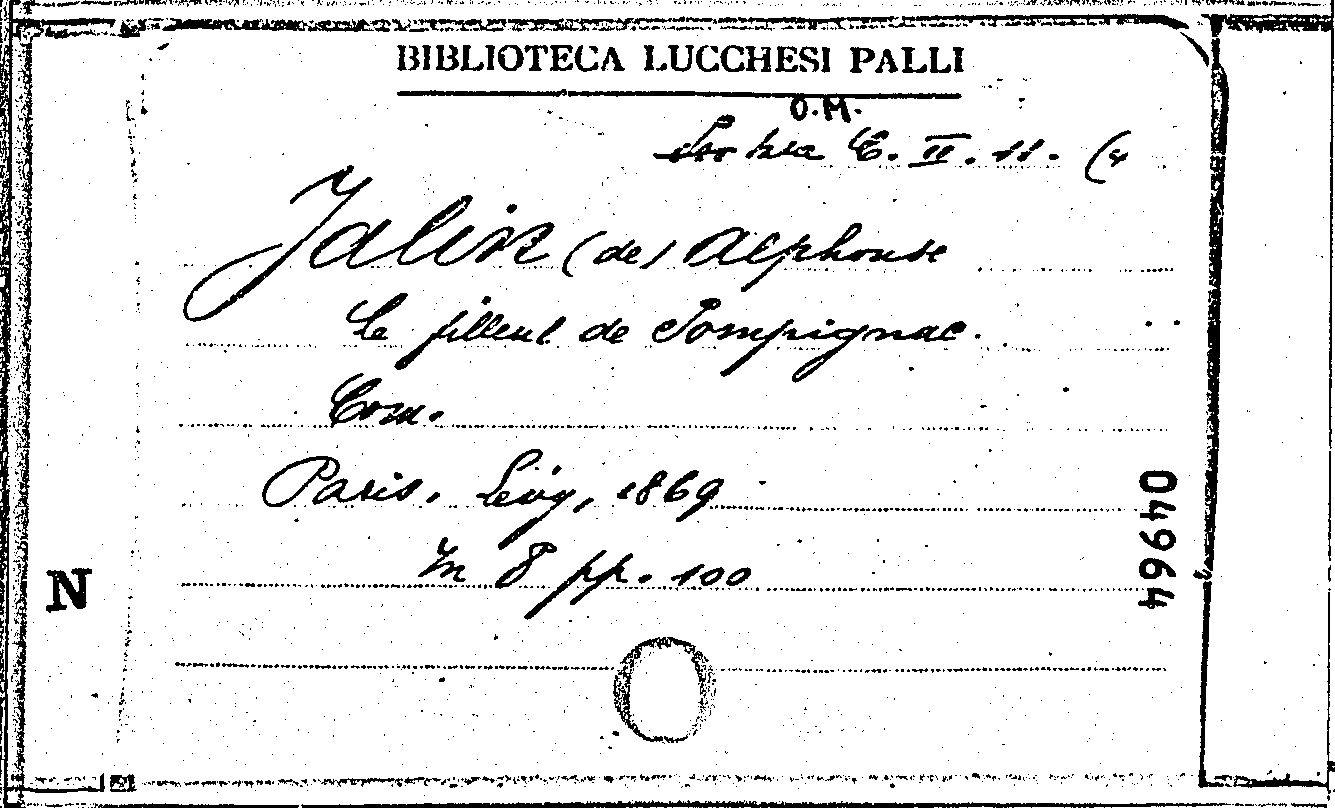 BIBLIOTECA LUCCHESI PALLI
O.M.
C. II. 11. (4
Jalin (de) Alphonse
Le filleul de Pompignac.
Com.
Paris. Lévy, 1869
In 8 pp. 100
N
04964